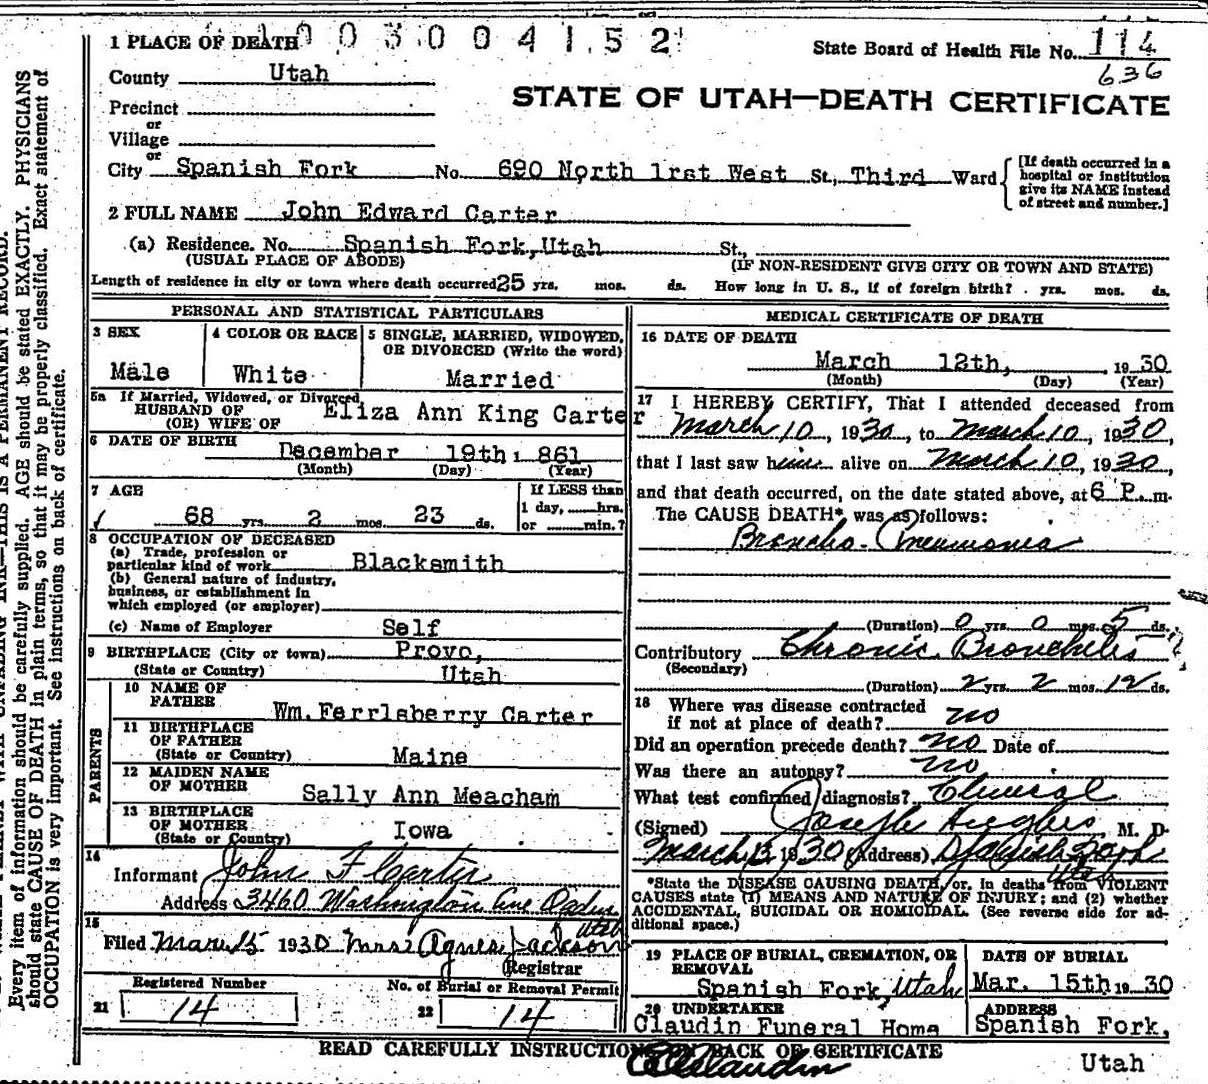 1 PLACE OF DEATH 1003004152
State Board of Health File No. 114
County Utah
636
STATE OF UTAH—DEATH CERTIFICATE
Precinct
or
Village
or
City Spanish Fork No. 690 North 1rst West St., Third Ward
[If death occurred in a hospital or institution give its NAME instead of street and number.]
2 FULL NAME John Edward Carter
(a) Residence. No. Spanish Fork, Utah St.,
(USUAL PLACE OF ABODE) (IF NON-RESIDENT GIVE CITY OR TOWN AND STATE)
Length of residence in city or town where death occurred 25 yrs. mos. ds. How long in U. S., if of foreign birth? yrs. mos. ds.
PERSONAL AND STATISTICAL PARTICULARS
3 SEX
Male
4 COLOR OR RACE
White
5 SINGLE, MARRIED, WIDOWED, OR DIVORCED (Write the word)
Married
5a If Married, Widowed, or Divorced
HUSBAND OF
(OR) WIFE OF Eliza Ann King Carter
6 DATE OF BIRTH
December 19th 1 861
(Month) (Day) (Year)
7 AGE
68 yrs. 2 mos. 23 ds.
If LESS than
1 day, hrs.
or min.?
8 OCCUPATION OF DECEASED
(a) Trade, profession or
particular kind of work Blacksmith
(b) General nature of industry,
business, or establishment in
which employed (or employer)
(c) Name of Employer Self
9 BIRTHPLACE (City or town) Provo,
(State or Country) Utah
PARENTS
10 NAME OF
FATHER
Wm. Ferrlsberry Carter
11 BIRTHPLACE
OF FATHER
(State or Country) Maine
12 MAIDEN NAME
OF MOTHER
Sally Ann Meacham
13 BIRTHPLACE
OF MOTHER
(State or Country) Iowa
14
Informant John F Carter
Address 3460 Washington Ave Ogden
Utah
15
Filed Mar 15 1930 Mrs. Agnes Jackson
Registrar
Registered Number
21 14
No. of Burial or Removal Permit
22 14
MEDICAL CERTIFICATE OF DEATH
16 DATE OF DEATH
March 12th, 1930
(Month) (Day) (Year)
17 I HEREBY CERTIFY, That I attended deceased from
March 10, 1930, to March 10, 1930,
that I last saw him alive on March 10, 1930
and that death occurred, on the date stated above, at 6 P. m.
The CAUSE DEATH* was as follows:
Broncho-Pneumonia
(Duration) 0 yrs. 0 mos. 5 ds.
Contributory Chronic Bronchitis
(Secondary)
(Duration) 2 yrs. 2 mos. 12 ds.
18 Where was disease contracted
if not at place of death? no
Did an operation precede death? no Date of
Was there an autopsy? no
What test confirmed diagnosis? Clinical
(Signed) Joseph Hughes, M. D.
March 13 1930 (Address) Spanish Fork
Utah
*State the DISEASE CAUSING DEATH, or, in deaths from VIOLENT
CAUSES state (1) MEANS AND NATURE OF INJURY; and (2) whether
ACCIDENTAL, SUICIDAL OR HOMICIDAL. (See reverse side for ad-
ditional space.)
19 PLACE OF BURIAL, CREMATION, OR
REMOVAL
Spanish Fork, Utah
DATE OF BURIAL
Mar. 15th 19 30
20 UNDERTAKER
Claudin Funeral Home
ADDRESS
Spanish Fork,
Utah
READ CAREFULLY INSTRUCTIONS ON BACK OF CERTIFICATE
Every item of information should be carefully supplied. AGE should be stated EXACTLY. PHYSICIANS
should state CAUSE OF DEATH in plain terms, so that it may be properly classified. Exact statement of
OCCUPATION is very important. See instructions on back of certificate.